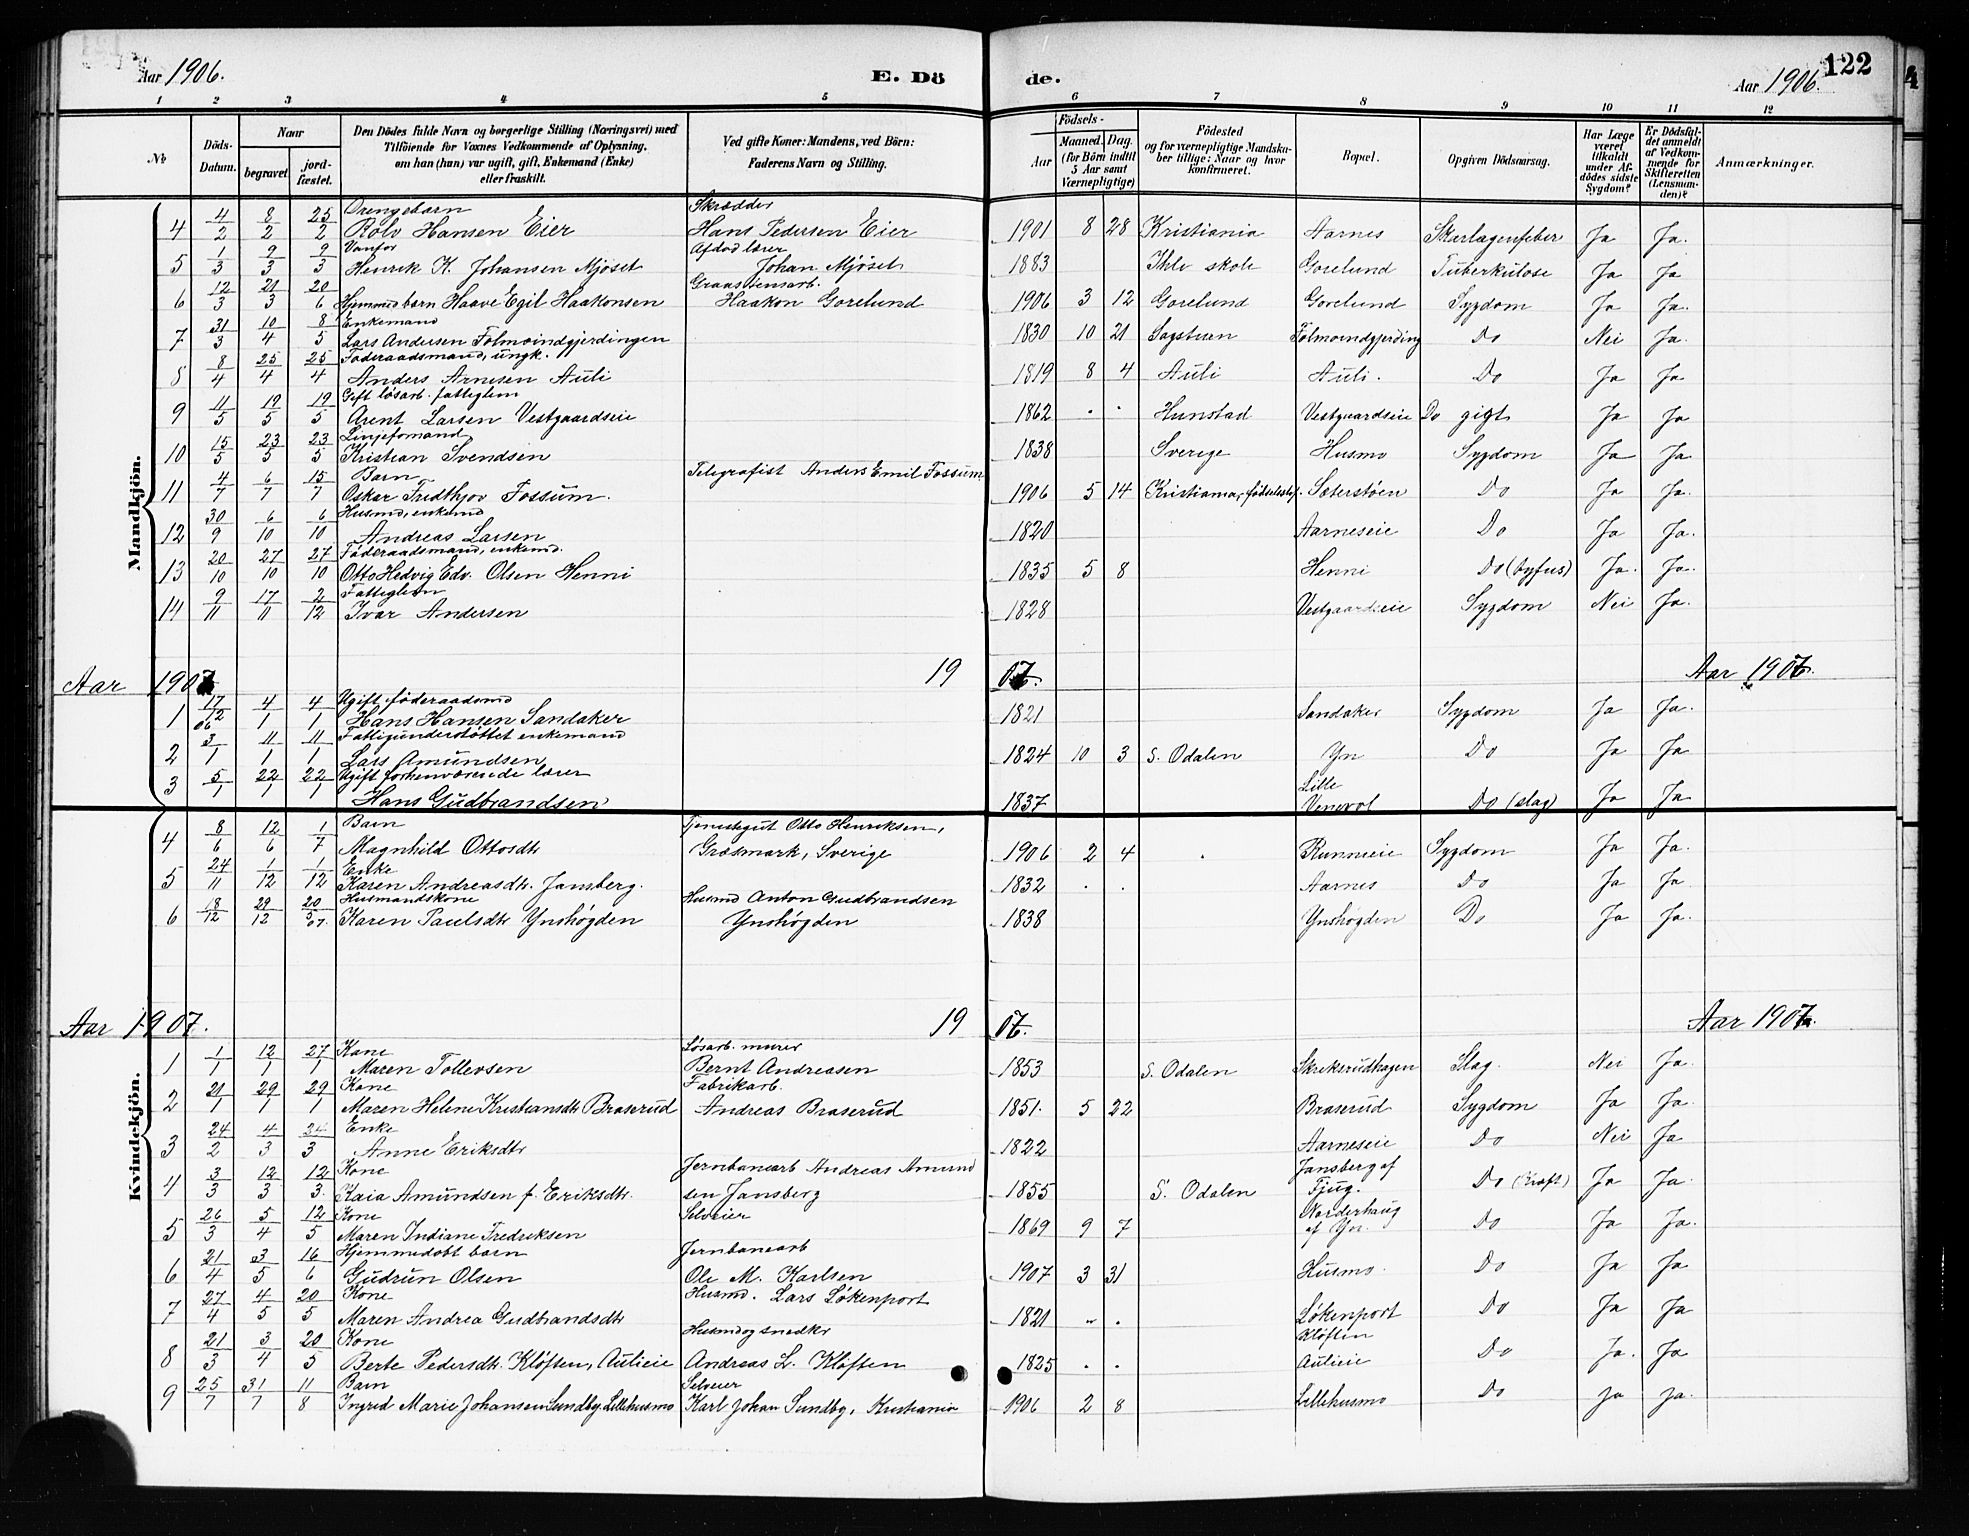 Aar 1906. E. Dö de. Aar 1906. 122
1 2 3 4 5 6 7 8 9 10 11 12
No Döds-Datum. Naar begravet. jord-fæstet. Den Dödes fulde Navn og borgerlige Stilling (Næringsvei) med Tilföiende for Voxnes Vedkommende af Oplysning, om han (hun) var ugift, gift, Enkemand (Enke) eller fraskilt. Ved gifte Koner: Mandens, ved Börn: Faderens Navn og Stilling. Födsels- Aar Maaned. Dag. (for Börn indtil 5 Aar samt Værnepligtige) Födested og for værnepligtige Mandskaber tillige: Naar og hvor konfirmeret. Bopæl. Opgiven Dödsaarsag. Har Læge været tilkaldt under Afdödes sidste Sygdom? Er Dödsfaldet anmeldt af Vedkommende for Skifteretten (Lensmanden)? Anmærkninger.
Mandkjön.
4 4/2 8/2 25/2 Drengebarn Rolv Hansen Eier Skrædder Hans Pedersen Eier 1901 8 28 Kristiania Aarnes Skarlagensfeber Ja Ja.
5 1/3 9/3 9/3 Vanfør Henrik K. Johansen Mjöset Afdöd lærer Johan Mjöset 1883 Ihle skole Gorelund Tuberkulose Ja Ja
6 12/3 21/3 20/6 Hjemmed barn Haave Egil Haakonsen Graastensarb. Haakon Gorelund 1906 3 12 Gorelund Gorelund Sygdom Ja Ja.
7 31/3 10/4 8/5 Enkemand Lars Andersen Folmoindgjerdingen 1830 10 21 Sagstuen Folmoindgjerding Do Nei Ja.
8 8/4 25/4 25/4 Föderaadsmand, ungk. Anders Arnesen Auli 1819 8 4 Auli Auli. Do Ja Ja
9 11/5 19/5 19/5 Gift løsarb. fattiglem Arent Larsen Vestgaardseie 1862 Hunstad Vestgaardseie Do gigt Ja Ja
10 15/5 23/5 23/5 Linjeformand Kristian Svendsen 1838 Sverige Husmo Sygdom Ja Ja
11 4/7 6/7 15/7 Barn Oskar Fredthjov Fossum. Telegrafist Anders Emil Fossum 1906 5 14 Kristiania, fødselsstif. Sæterstøen Do Ja Ja.
12 30/9 6/10 6/10 Husmd, enkemd Andreas Larsen 1820 Aarneseie Do Ja Ja.
13 20/10 27/10 27/10 Föderaadsmand, enkemd. Otto Hedvig Edv. Olsen Henni 1835 5 8 Henni Do (tyfus) Ja. Ja.
14 9/11 17/11 2/12 Fattiglem Ivar Andersen 1828 Vestgaardseie Sygdom Nei Ja.
Aar 1907 19 07. Aar 1907.
1 17/12 06 4/1 4/1 Ugift föderaadsmd Hans Hansen Sandaker 1821 Sandaker Sygdom Ja Ja.
2 3/1 11/1 11/1 Fattigunderstöttet enkemand Lars Amundsen 1824 10 3 S. Odalen Yn Do Ja Ja
3 5/1 22/1 22/1 Ugift forhenværende lærer Hans Gudbrandsen 1837 Lille Venevol Do (slag) Ja Ja
Kvindekjön.
4 8/6 12/6 1/7 Barn Magnhild Ottosdtr Tjenestegut Otto Henriksen, Græsmark, Sverige 1906 2 4 Runnieie Sygdom Ja Ja.
5 24/11 1/12 1/12 Enke Karen Andreasdtr. Jansberg. 1832 Aarnes Do Ja Ja
6 18/12 29/12 20/5 07. Husmandskone Karen Paulsdtr Ynshøgden Husmd Anton Gudbrandsen Ynshøgden 1838 Ynshøgden Do Ja Ja.
Aar 1907. 19 07. Aar 1907.
1 1/1 12/1 27/1 Kone Maren Tollevsen Løsarb. murer Bernt Andreasen 1853 S. Odalen Skrikerudhagen Slag. Nei Ja.
2 21/1 29/1 29/1 Kone Maren Helene Kristiansdtr Braserud Fabrikarb. Andreas Braserud 1851. 5 22 Braserud Sygdom Ja Ja.
3 24/2 4/3 24/3 Enke Anne Eriksdtr 1822 Aarneseie Do Nei Ja
4 3/3 12/3 12/3. Kone Kaia Amundsen f. Eriksdtr. Jernbanearb Andreas Amundsen Jansberg 1855 S. Odalen Jansberg af Fjug. Do (kræft) Ja Ja.
5 26/3 5/4 12/5 Kone Maren Indiane Fredriksen Selveier 1869 9 7 Norderhaug af Yn. Do Ja Ja.
6 21/4 3/5 16/6 Hjemmedöbt barn Gudrun Olsen Jernbanearb Ole M. Karlsen 1907 3 31 Husmo. Do Ja Ja
7 27/4 4/5 20/5 Kone Maren Andrea Gudbrandsdtr Husmd. Lars Løkenport 1821 Løkenport Do Ja Ja
8 21/3 3/4 20/5 Kone Berte Pedersdtr. Kløften, Aulieie Husmd og snedker Andreas L. Kløften 1825 Kløften Aulieie Do Ja. Ja
9 25/7 31/7 11/8 Barn Ingrid Marie Johansen Sundby, Lillehusmo Selveier Karl Johan Sundby, Kristiania 1906 2 8 Lillehusmo Do ja ja.